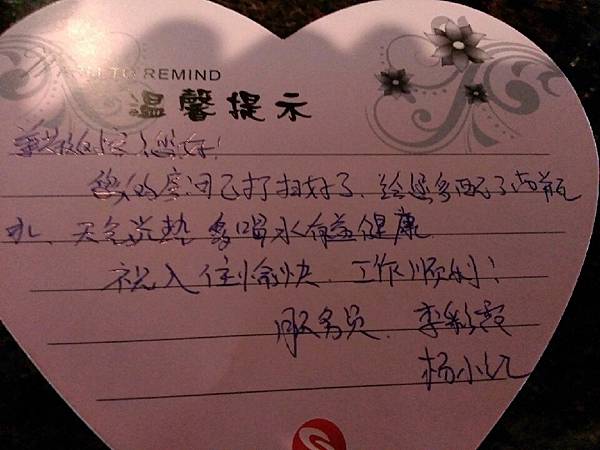 TO REMIND
温馨提示
尊敬的宾客您好!
您的房间已打扫好了、给您多配了两瓶
水、天气炎热 多喝水有益健康
祝入住愉快、工作顺利!
服务员、李彩霞
杨小红